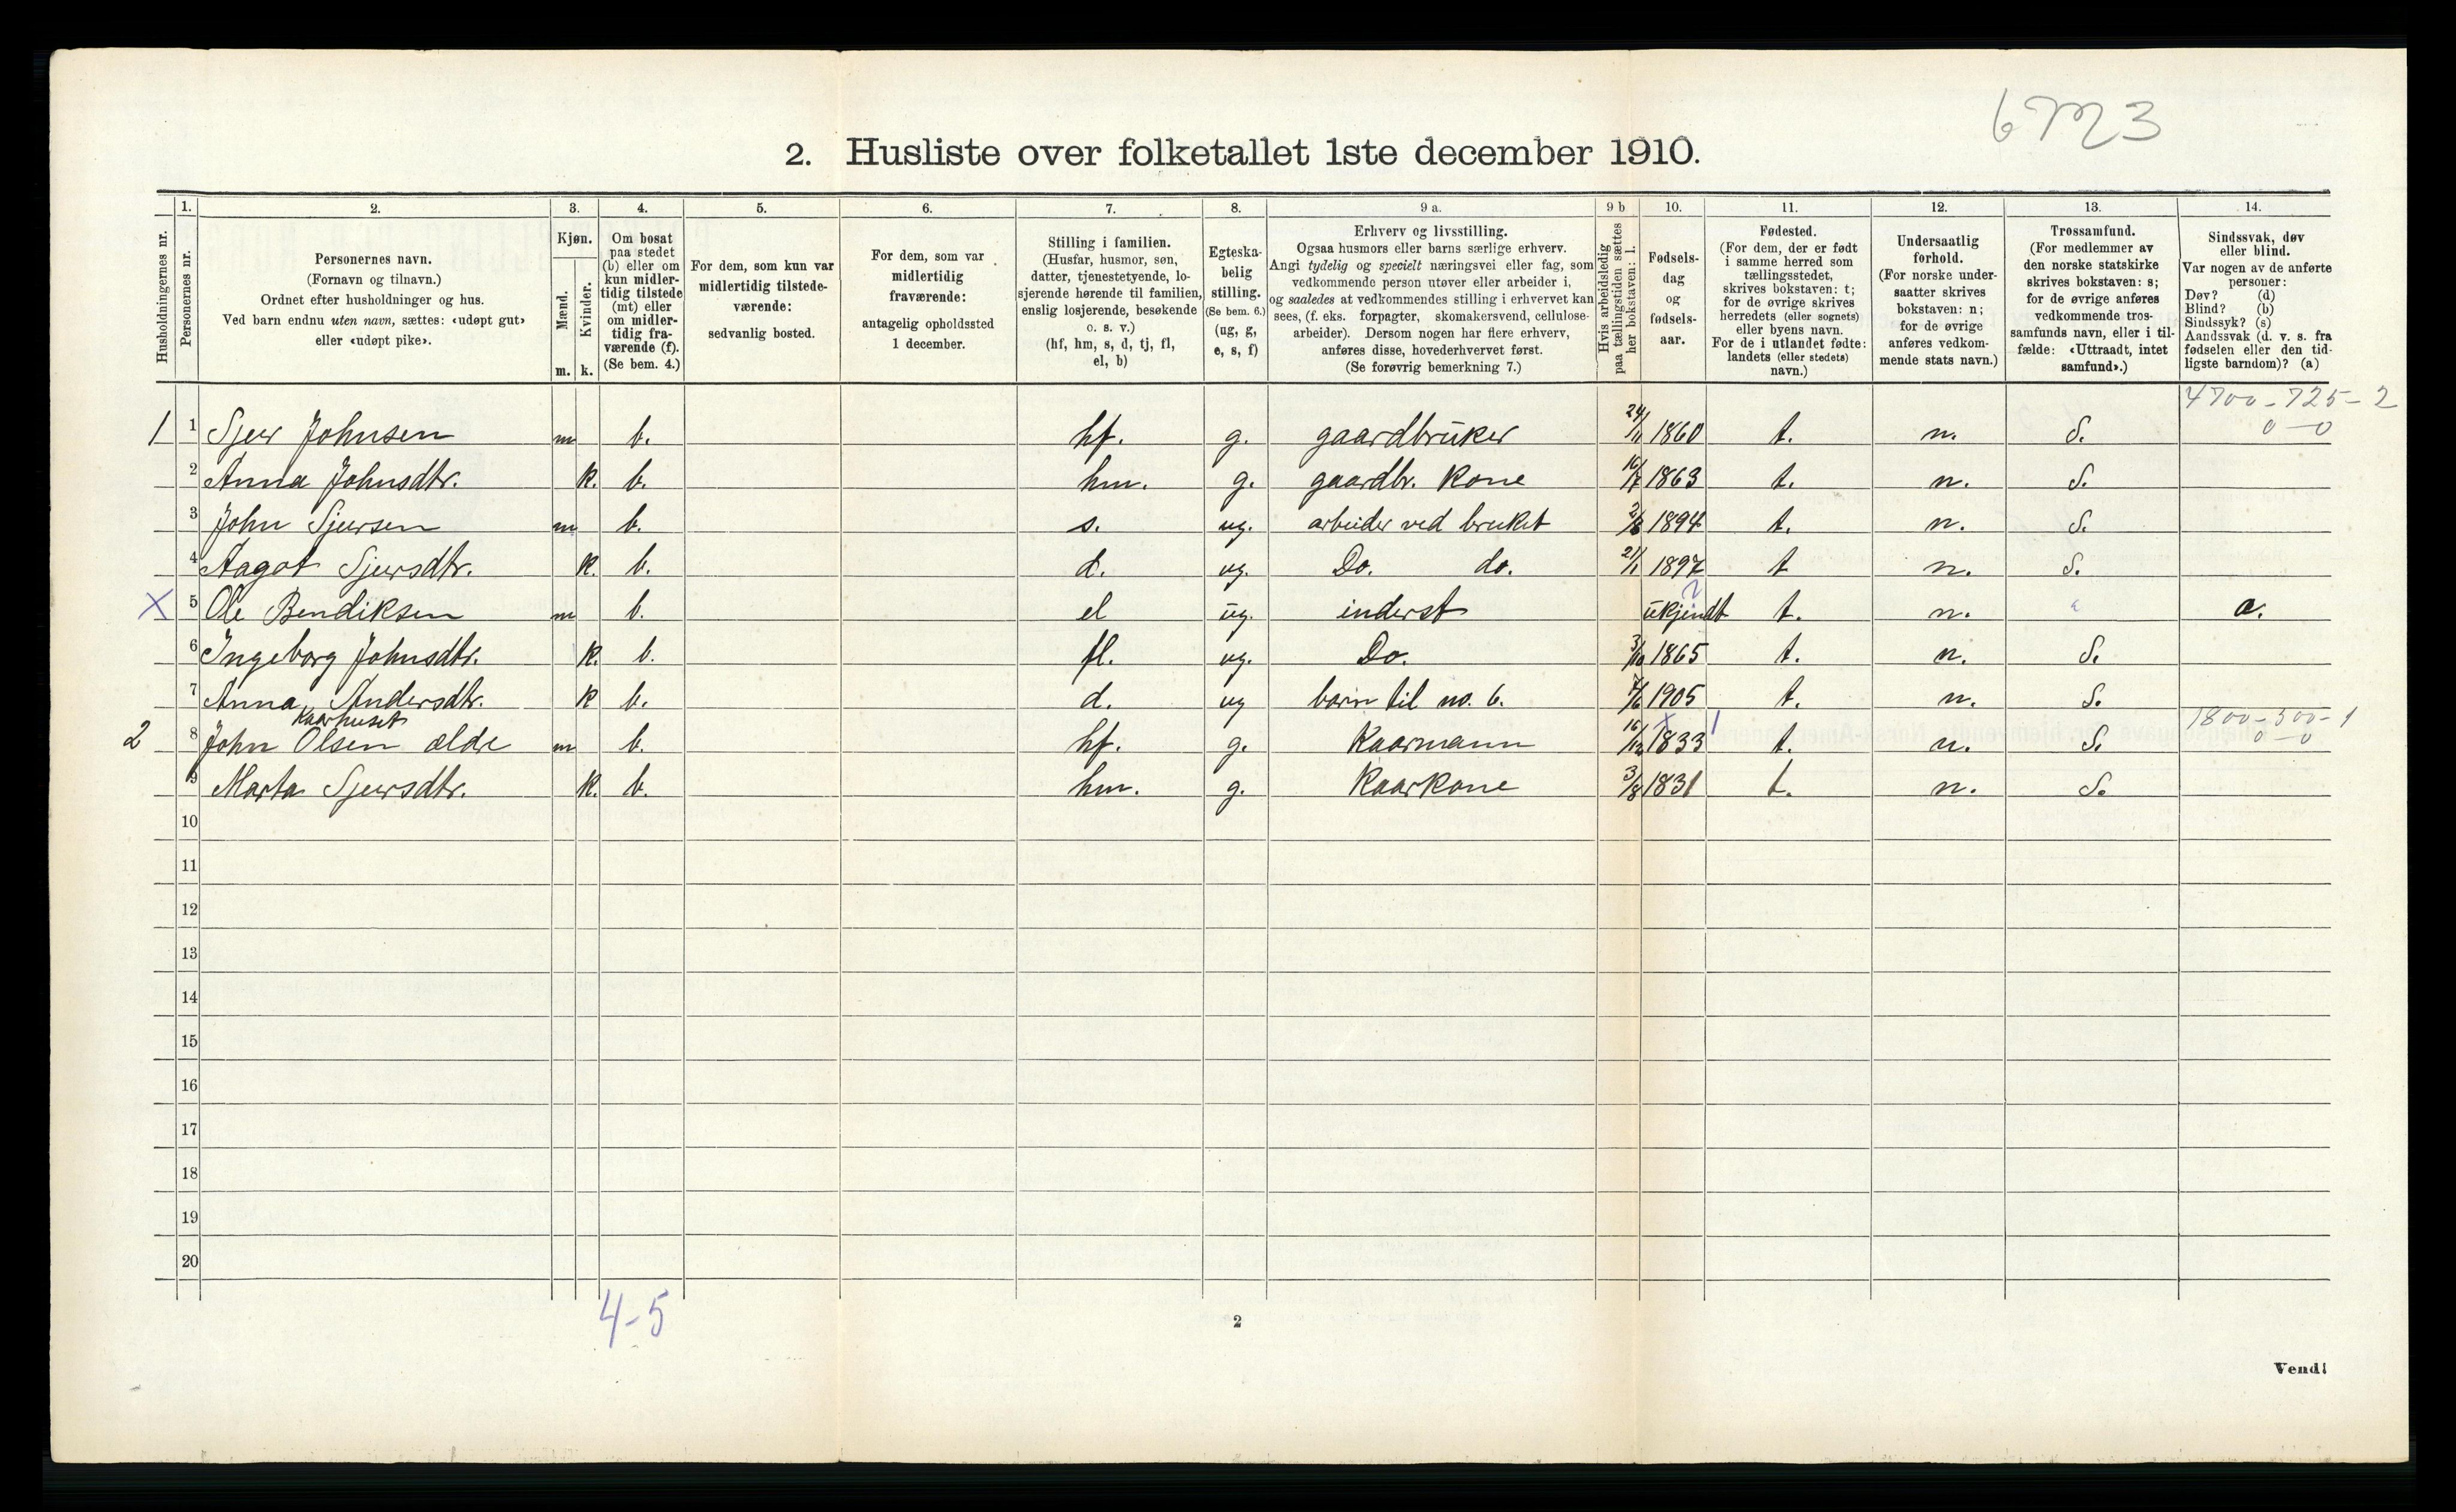 6723
2. Husliste over folketallet 1ste december 1910.
Husholdningernes nr.
1. Personernes nr.
2. Personernes navn. (Fornavn og tilnavn.) Ordnet efter husholdninger og hus. Ved barn endnu uten navn, sættes: «udøpt gut» eller «udøpt pike».
3. Kjøn. Mænd. m. Kvinder. k.
4. Om bosat paa stedet (b) eller om kun midlertidig tilstede (mt) eller om midlertidig fraværende (f). (Se bem. 4.)
5. For dem, som kun var midlertidig tilstedeværende: sedvanlig bosted.
6. For dem, som var midlertidig fraværende: antagelig opholdssted 1 december.
7. Stilling i familien. (Husfar, husmor, søn, datter, tjenestetyende, losjerende hørende til familien, enslig losjerende, besøkende o. s. v.) (hf, hm, s, d, tj, fl, el, b)
8. Egteskabelig stilling. (Se bem. 6.) (ug, g, e, s, f)
9 a. Erhverv og livsstilling. Ogsaa husmors eller barns særlige erhverv. Angi tydelig og specielt næringsvei eller fag, som vedkommende person utøver eller arbeider i, og saaledes at vedkommendes stilling i erhvervet kan sees, (f. eks. forpagter, skomakersvend, cellulosearbeider). Dersom nogen har flere erhverv, anføres disse, hovederhvervet først. (Se forøvrig bemerkning 7.)
9 b Hvis arbeidsledig paa tællingstiden sættes her bokstaven: l.
10. Fødselsdag og fødselsaar.
11. Fødested. (For dem, der er født i samme herred som tællingsstedet, skrives bokstaven: t; for de øvrige skrives herredets (eller sognets) eller byens navn. For de i utlandet fødte: landets (eller stedets) navn.)
12. Undersaatlig forhold. (For norske undersaatter skrives bokstaven: n; for de øvrige anføres vedkommende stats navn.)
13. Trossamfund. (For medlemmer av den norske statskirke skrives bokstaven: s; for de øvrige anføres vedkommende trossamfunds navn, eller i tilfælde: «Uttraadt, intet samfund».)
14. Sindssvak, døv eller blind. Var nogen av de anførte personer: Døv? (d) Blind? (b) Sindssyk? (s) Aandssvak (d. v. s. fra fødselen eller den tidligste barndom)? (a)
4700-725-2
0-0
1 1 Sjur Johnsen m b. hf. g. gaardbruker 24/11 1860 t. n. S.
2 Anna Johnsdtr. k. b. hm. g. gaardbr. Kone 16/7 1863 t. n. S.
3 John Sjursen m b. s. ug. arbeider ved bruket 1894 t. n. S.
4 Aagot Sjursdtr. k. b. d. ug. Do. do. 21/1 1897 t n. S.
X 5 Ole Bendiksen m b. el ug. inderst ukjendt t. n. a.
6 Ingeborg Johnsdtr. k. b. fl. ug. Do. 3/10 1865 t. n. S.
7 Anna Andersdtr. k b. d. ug barn til no. 6. 7/6 1905 t. n. S.
Kaarhuset
1800-300-1
0-0
2 8 John Olsen ældr m b. hf. g. Kaarmann 16/12 1833 t. n. S.
9 Marta Sjursdtr. k. b. hm. g. Kaarkone 3/8 1831 t. n. S.
10
11
12
13
14
15
16
17
18
19
20
4-5
2
Vend!